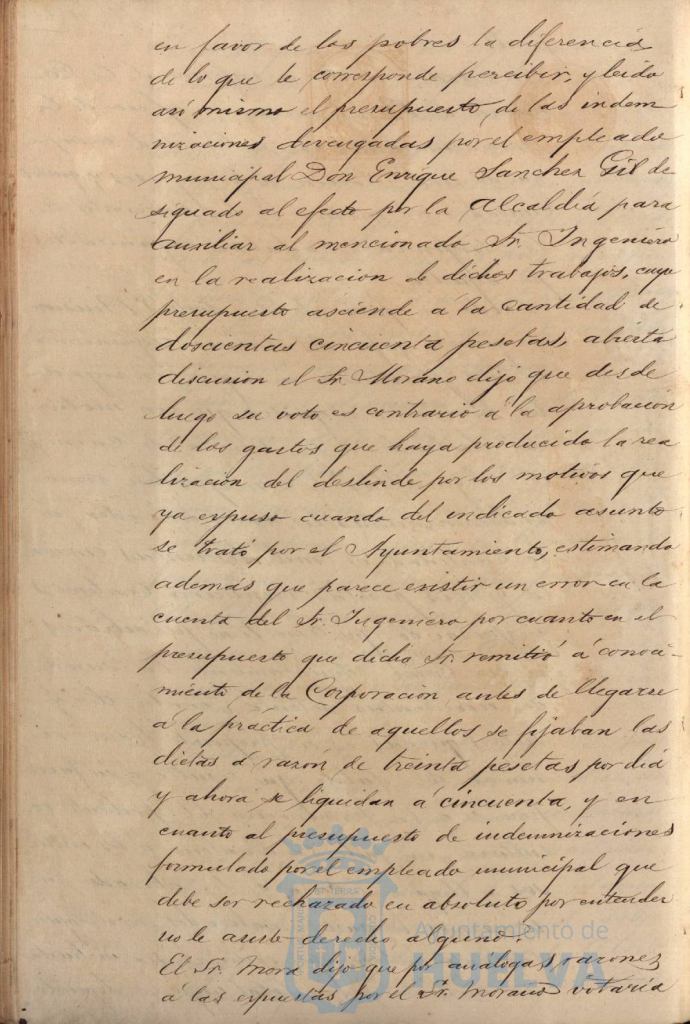 en favor de los pobres la diferencia
de lo que le corresponde percibir, y leido
asi mismo el presupuesto, de las indem
nizaciones devengadas por el empleado
municipal Don Enrique Sanchez Gil de
signado al efecto por la Alcaldiá para
auxiliar al mencionado Sr. Ingeniero
en la realizacion de dichos trabajos, cuyo
presupuesto asciende á la cantidad de
doscientas cincuenta pesetas, abierta
discusion el Sr. Morano dijo que desde
luego su voto es contrario á la aprobación
de los gastos que haya producido la rea
lizacion del deslinde por los motivos que
ya expuso cuando del indicado asunto
se trató por el Ayuntamiento, estimando
además que parece existir un error en la
cuenta del Sr. Ingeniero por cuanto en el
presupuesto que dicho Sr. remitió á conoci-
miento de la Corporación antes de llegarse
á la práctica de aquellos se fijaban las
dietas á razón de treinta pesetas por diá
y ahora se liquidan á cincuenta, y en
cuanto al presupuesto de indemnizaciones
formulado por el empleado municipal que
debe ser rechazado en absoluto por entender
no le asiste derecho alguno.
El Sr. Mora dijo que por análogas razones
á las expuestas por el Sr. Morano votaria
Ayuntamiento de
HUELVA